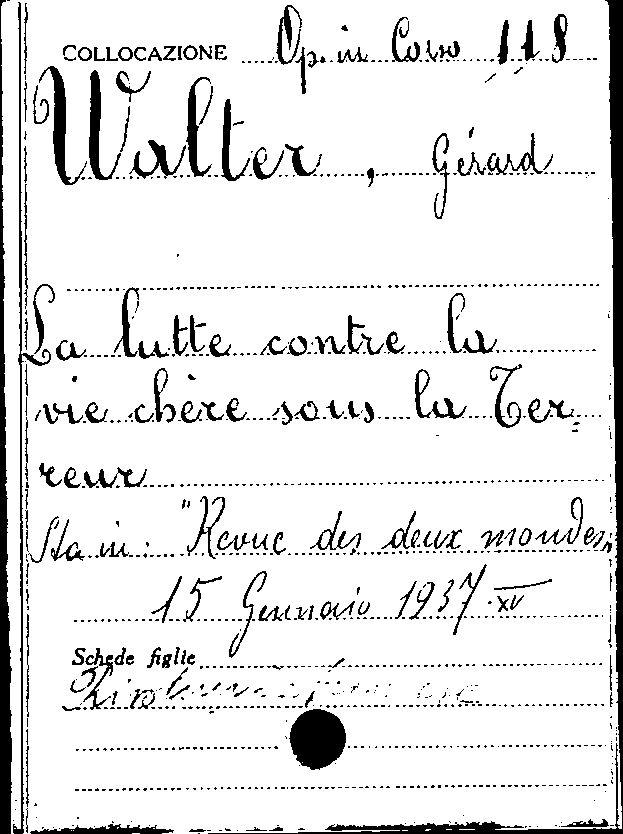 COLLOCAZIONE Op. in Corso 118
Walter, Gérard
La lutte contre la
vie chère sous la Ter=
reur
Sta in: "Revue des deux mondes"
15 Gennaio 1937.XV
Schede figlie